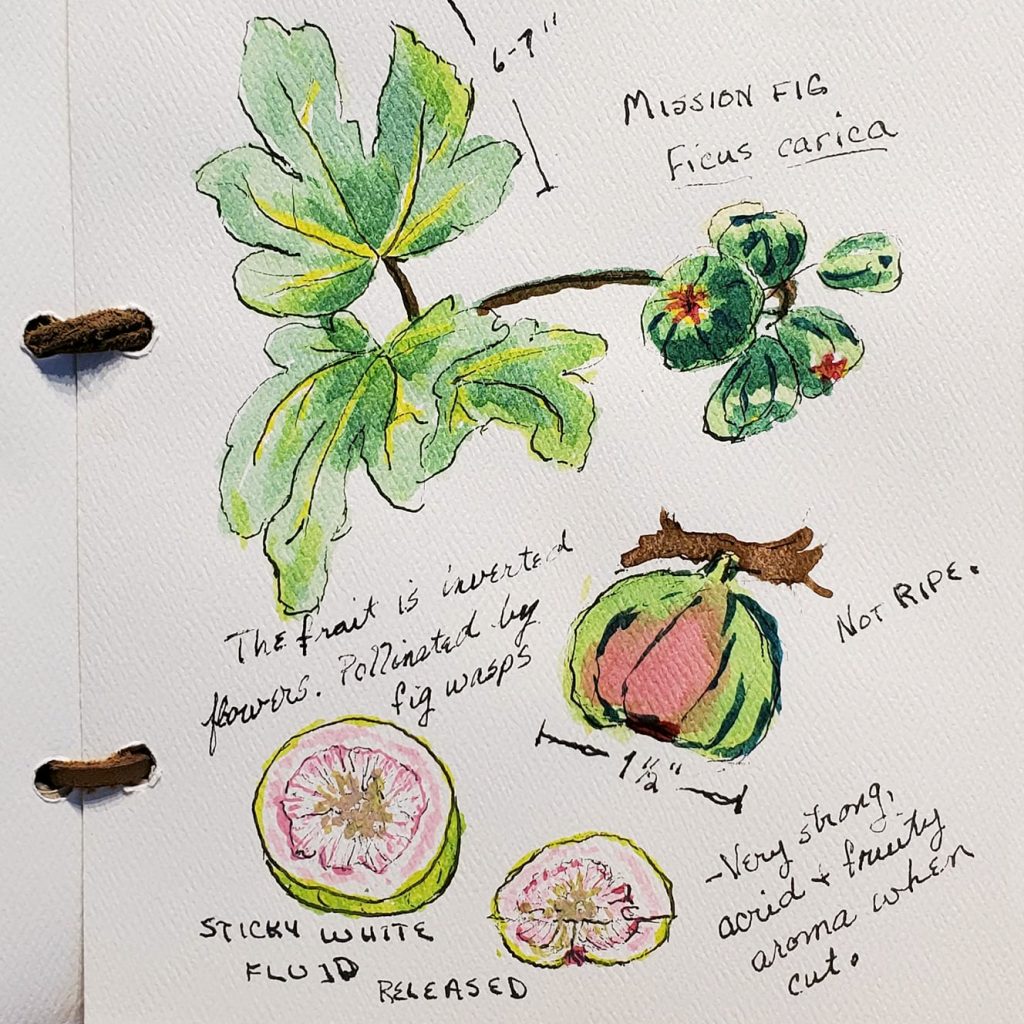 6-7"
MISSION FIG
Ficus carica
The fruit is inverted
flowers. Pollinated by
fig wasps
NOT RIPE.
1 1/2"
-Very strong,
acrid & fruity
aroma when
cut.
STICKY WHITE
FLUID
RELEASED